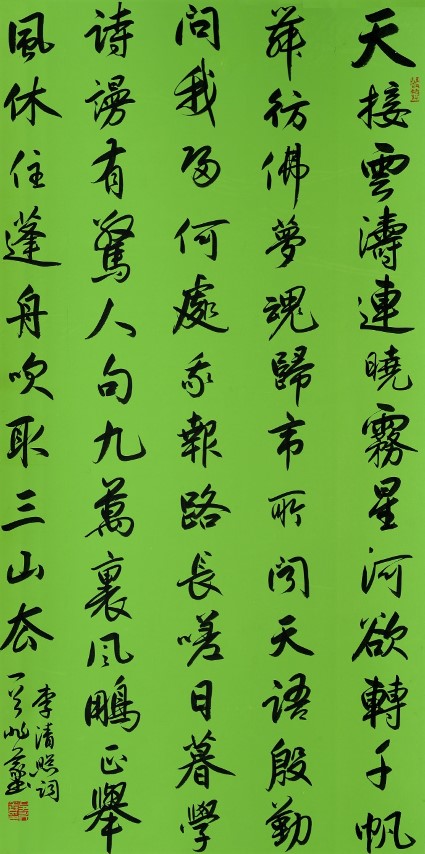 天接雲濤連曉霧星河欲轉千帆
舞彷佛夢魂歸帝所聞天語殷勤
問我歸何處我報路長嗟日暮學
詩謾有驚人句九萬裏風鵬正舉
風休住蓬舟吹取三山去
李清照詞